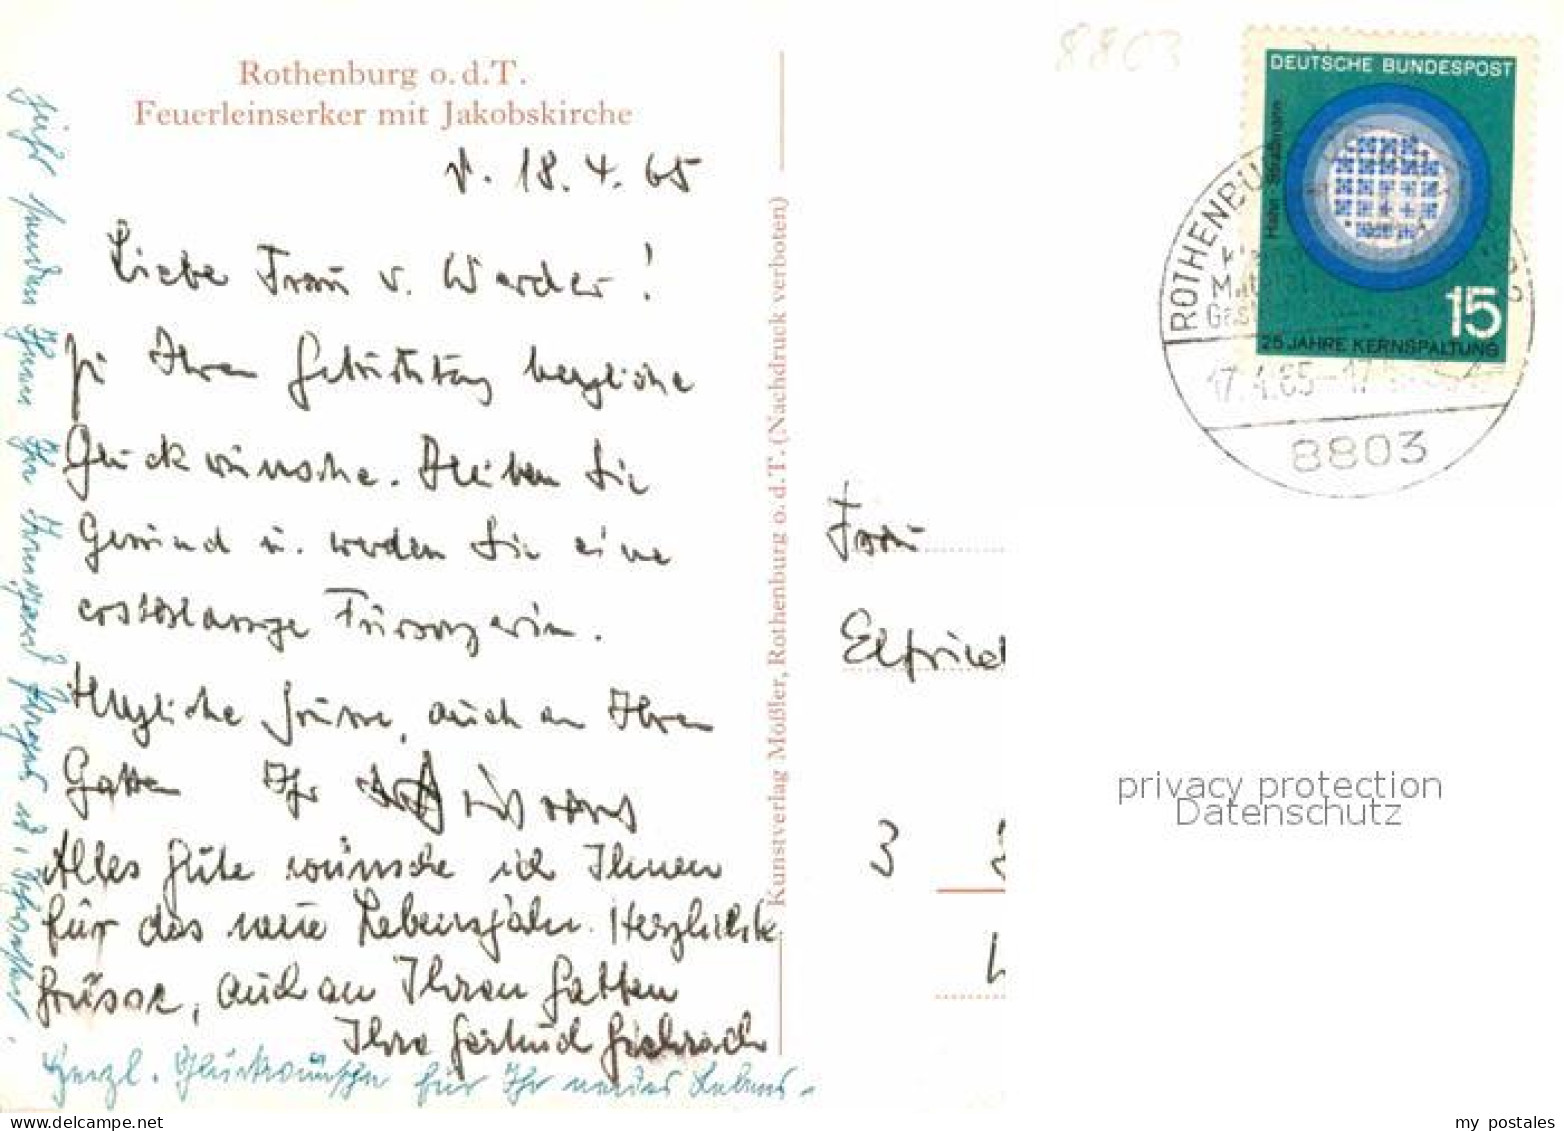 Rothenburg o.d.T.
Feuerleinserker mit Jakobskirche
v. 18.4.65
Liebe Frau v. Werder!
Zu Ihrem Geburtstag herzliche
Glückwünsche. Bleiben Sie
Gesund u. werden Sie eine
erstklassige Fürsorgerin.
Herzliche Grüsse, auch an Ihren
Gatten Ihr
Alles Gute wünsche ich Ihnen
für das neue Lebensjahr. Herzlichste
Grüsse, auch an Ihren Gatten
Ihre Gertrud
Herzl. Glückwünsche für Ihr neues Lebens-
Kunstverlag Mößler, Rothenburg o. d. T. (Nachdruck verboten)
8803
DEUTSCHE BUNDESPOST
Hahn Straßmann
15
25 JAHRE KERNSPALTUNG
ROTHENBU
17.4.65-17
8803
Frau
Elfried
3
privacy protection
Datenschutz
my postales